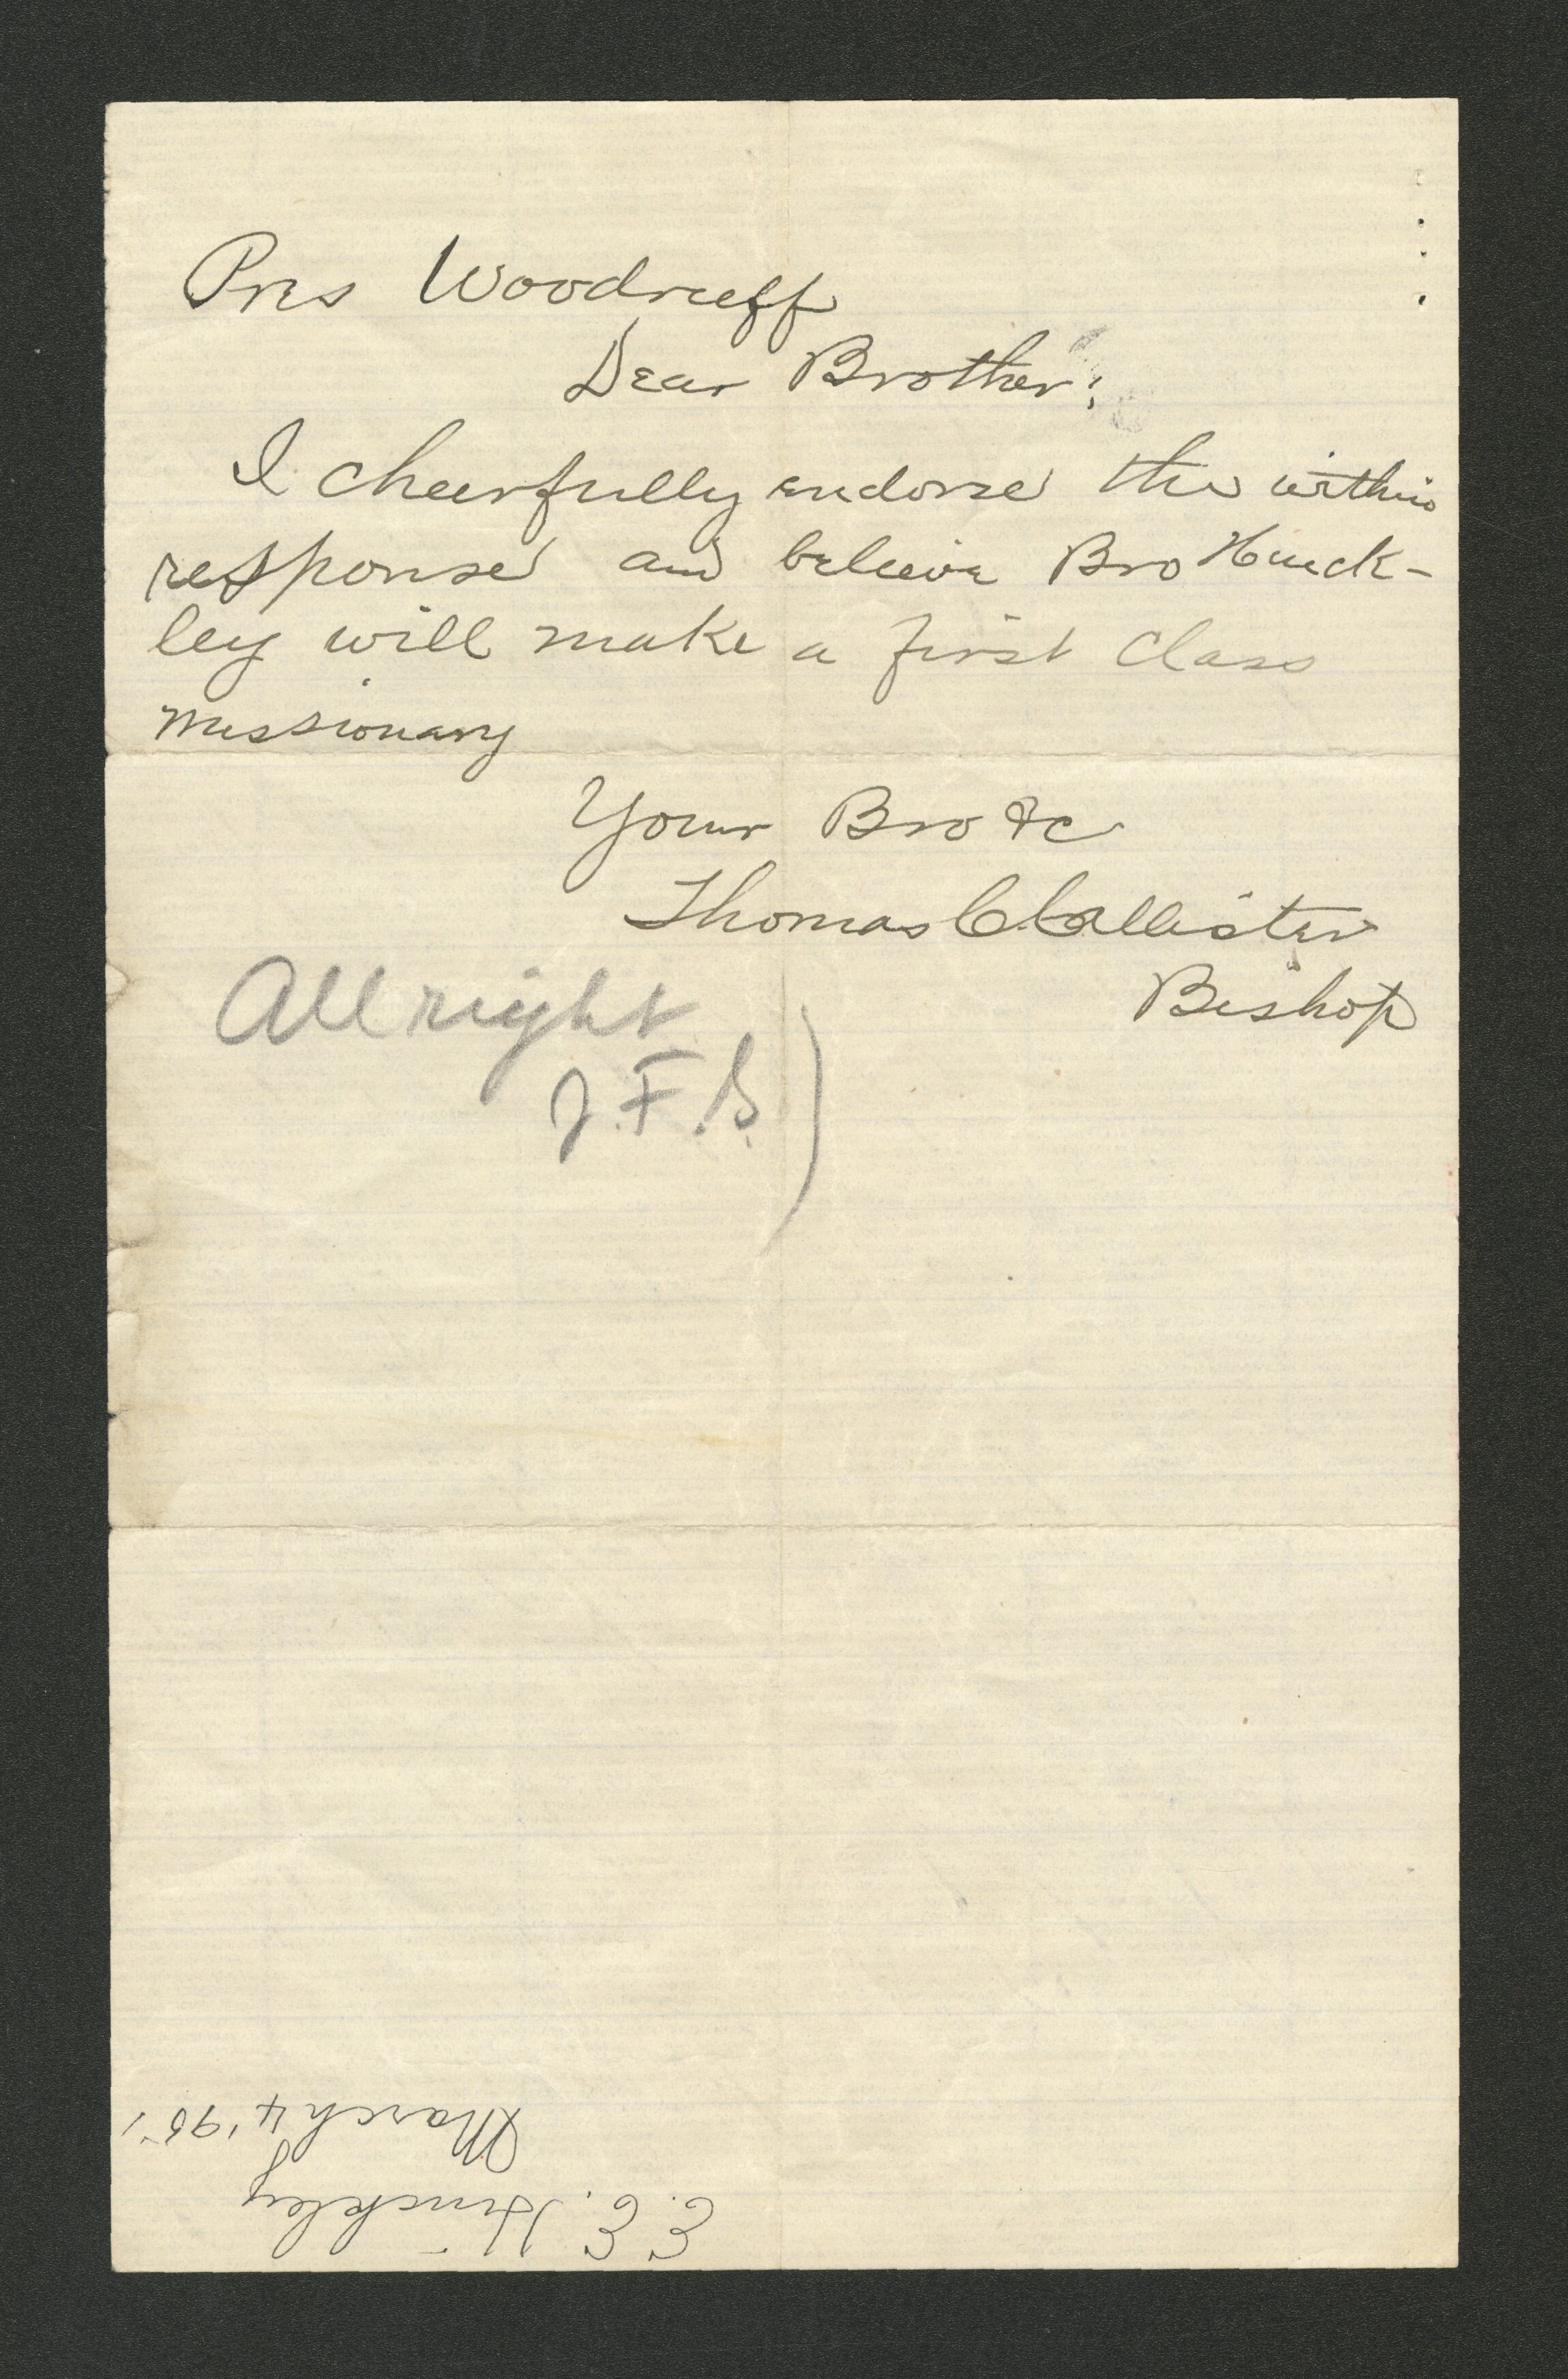 Pres Woodruff
Dear Brother;
I cheerfully endorse the within
response and believe Bro Hinck-
ley will make a first class
missionary
Your Bro &c
Thomas C Callister
Bishop
All right
J.F.S.)
E. E. Hinckley
March 4, '95